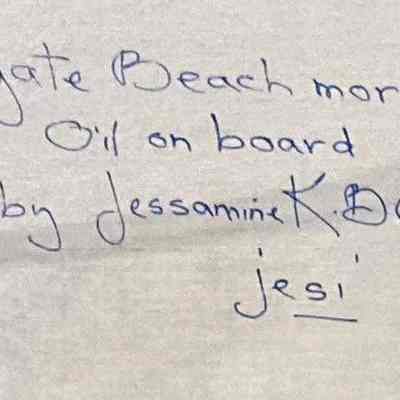 gate Beach mor
Oil on board
by Jessamine K. D
'jesi'